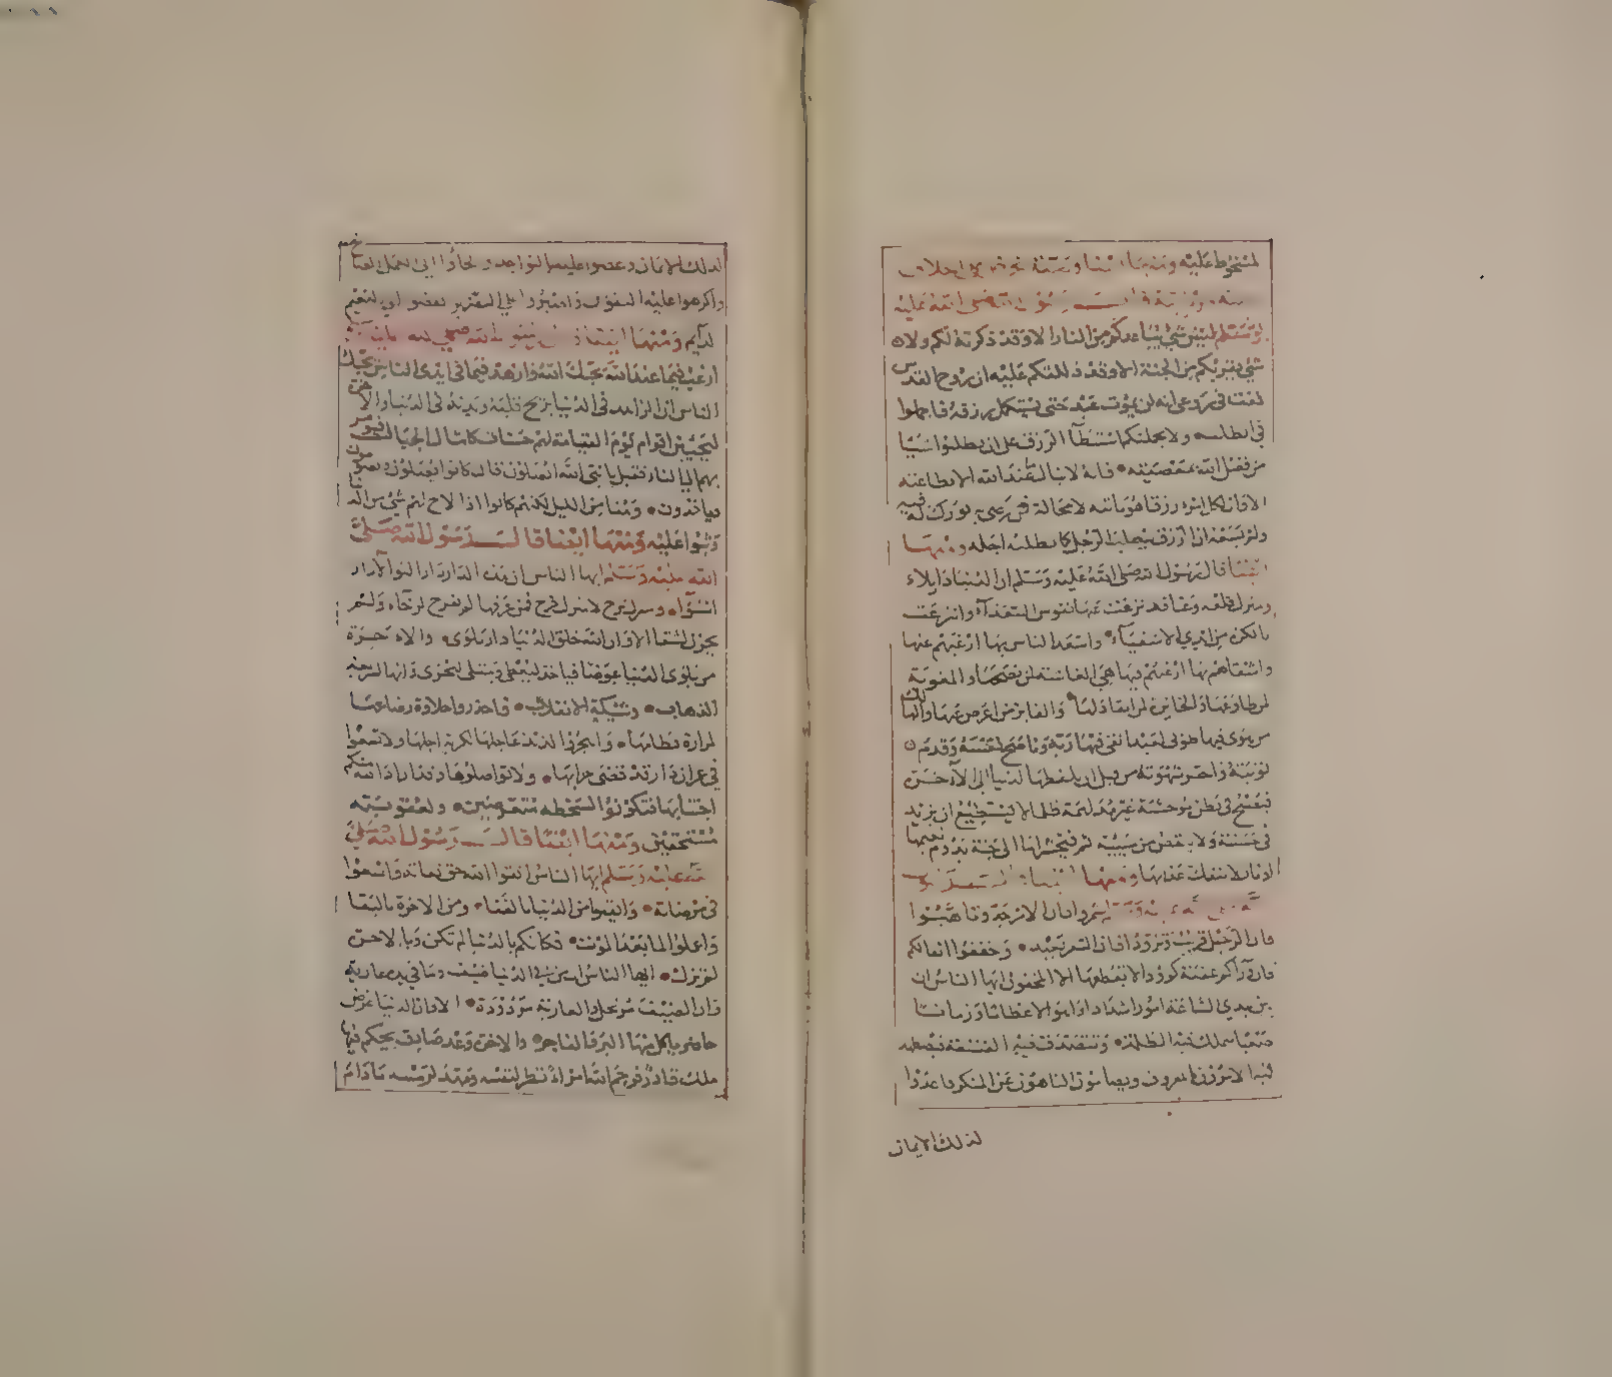 لسخوط عليه ومنها
وسلم ليس شيء يباعدكم من النار الا وقد ذكرته لكم ولا
شيء يقربكم من الجنة الا وقد دللتكم عليه ان روح القدس
نفث في روعي انه لن يموت عبد حتى يستكمل رزقه فاجملوا
في الطلب ولا يحملنكم استبطآ الرزق على ان تطلبوا شيئا
من فضل الله بمعصيته فانه لا ينال ما عند الله الا بطاعته
الا وان لكل امرء رزقا هو ياتيه لا محالة فمن رضي به بورك له فيه
ان الرزق ليطلب الرجل كما يطلبه اجله ومنها
ايضا قال رسول الله صلى الله عليه وسلم ان الدنيا دار بلاء
ومنزل قلعة وعناء قد نزعت عنها نفوس السعدآء وانتزعت
بالكره من ايدي الاشقيآء واسعد الناس بها ارغبهم عنها
واشقاهم بها ارغبهم فيها هي الغاشة لمن انتصحها والمغوية
لمن اطاعها والفايز من اعرض عنها والهالك
من هوى فيها طوبى لعبد اتقى فيها ربه وناصح نفسه وقدم
توبته واخر شهوته من قبل ان تلفظه الدنيا الى الآخرة
فيصبح في بطن موحشة غبراء مدلهمة ظلماء لا يستطيع ان يزيد
في حسنة ولا ينقص من سيئة ثم ينشر فيحشر اما الى جنة يدوم نعيمها
او نار لا ينفك عذابها ومنها ايضا
شمروا فان الامر جد وتاهبوا
فان الرحيل قريب وتزودوا فان السفر بعيد وخففوا اثقالكم
فان ورآكم عقبة كؤودا لا يقطعها الا المخفون ايها الناس ان
بين يدي الساعة امورا شدادا واهوالا عظاما وزمانا
صعبا يتملك فيه الظلمة وتتصدر فيه الفسقة فيضطهد
فيه الآمرون بالمعروف ويضام الناهون عن المنكر فاعدوا
لذلك الايمان
لذلك الايمان وعضوا عليه بالنواجذ والجأوا الى العمل الصا
واكرهوا عليه النفوس واصبروا على الضراء تفضوا الى النعيم
الدايم ومنها ايضا قال رسول الله صلى الله عليه
ارغب فيما عند الله يحبك الله وازهد فيما في ايدى الناس يحبك
الناس ان الزاهد في الدنيا يريح قلبه وبدنه في الدنيا والاخرة
ليجيئن اقوام يوم القيامة لهم حسنات كامثال الجبال فيؤمر
بهم الى النار فقيل يا نبي الله المصلون قال كانوا يصلون ويصومون
وياخذون وهنا من الليل لكنهم كانوا اذا لاح لهم شيء من الد
وثبوا عليه ومنها ايضا قال رسول الله صلى
الله عليه وسلم ايها الناس ان هذه الدار دار التوآ لا دار
استوآء ومنزل ترح لا منزل فرح فمن عرفها لم يفرح لرخاء ولم
يحزن لشقا الا وان الله خلق الدنيا دار بلوى والاخرة
من بلوى الدنيا عوضا فياخذ ليعطي ويبتلي ليجزى وانها لسريعة
الذهاب وشيكة الانقلاب فاحذروا حلاوة رضاعها
لمرارة فطامها واهجروا لذيذ عاجلها لكريه اجلها ولا تسعوا
في عمران دار قد قضى خرابها ولا تواصلوها وقد اراد الله منكم
اجتنابها فتكونوا لسخطه متعرضين ولعقوبته
مستحقين ومنها ايضا قال رسول الله صلى
الله عليه وسلم ايها الناس اتقوا الله حق تقاته واسعوا
في مرضاته وايقنوا من الدنيا بالفنا ومن الاخرة بالبقا
واعملوا لما بعد الموت فكانكم بالدنيا لم تكن وبالاخرة
لم تزل ايها الناس ان من في الدنيا ضيف وما في يده عارية
وان الضيف مرتحل والعارية مردودة الا وان الدنيا عرض
حاضر ياكل منها البر والفاجر والاخرة وعد صادق يحكم فيها
ملك قادر فرحم الله امراء نظر لنفسه ومهد لرمسه ما دام